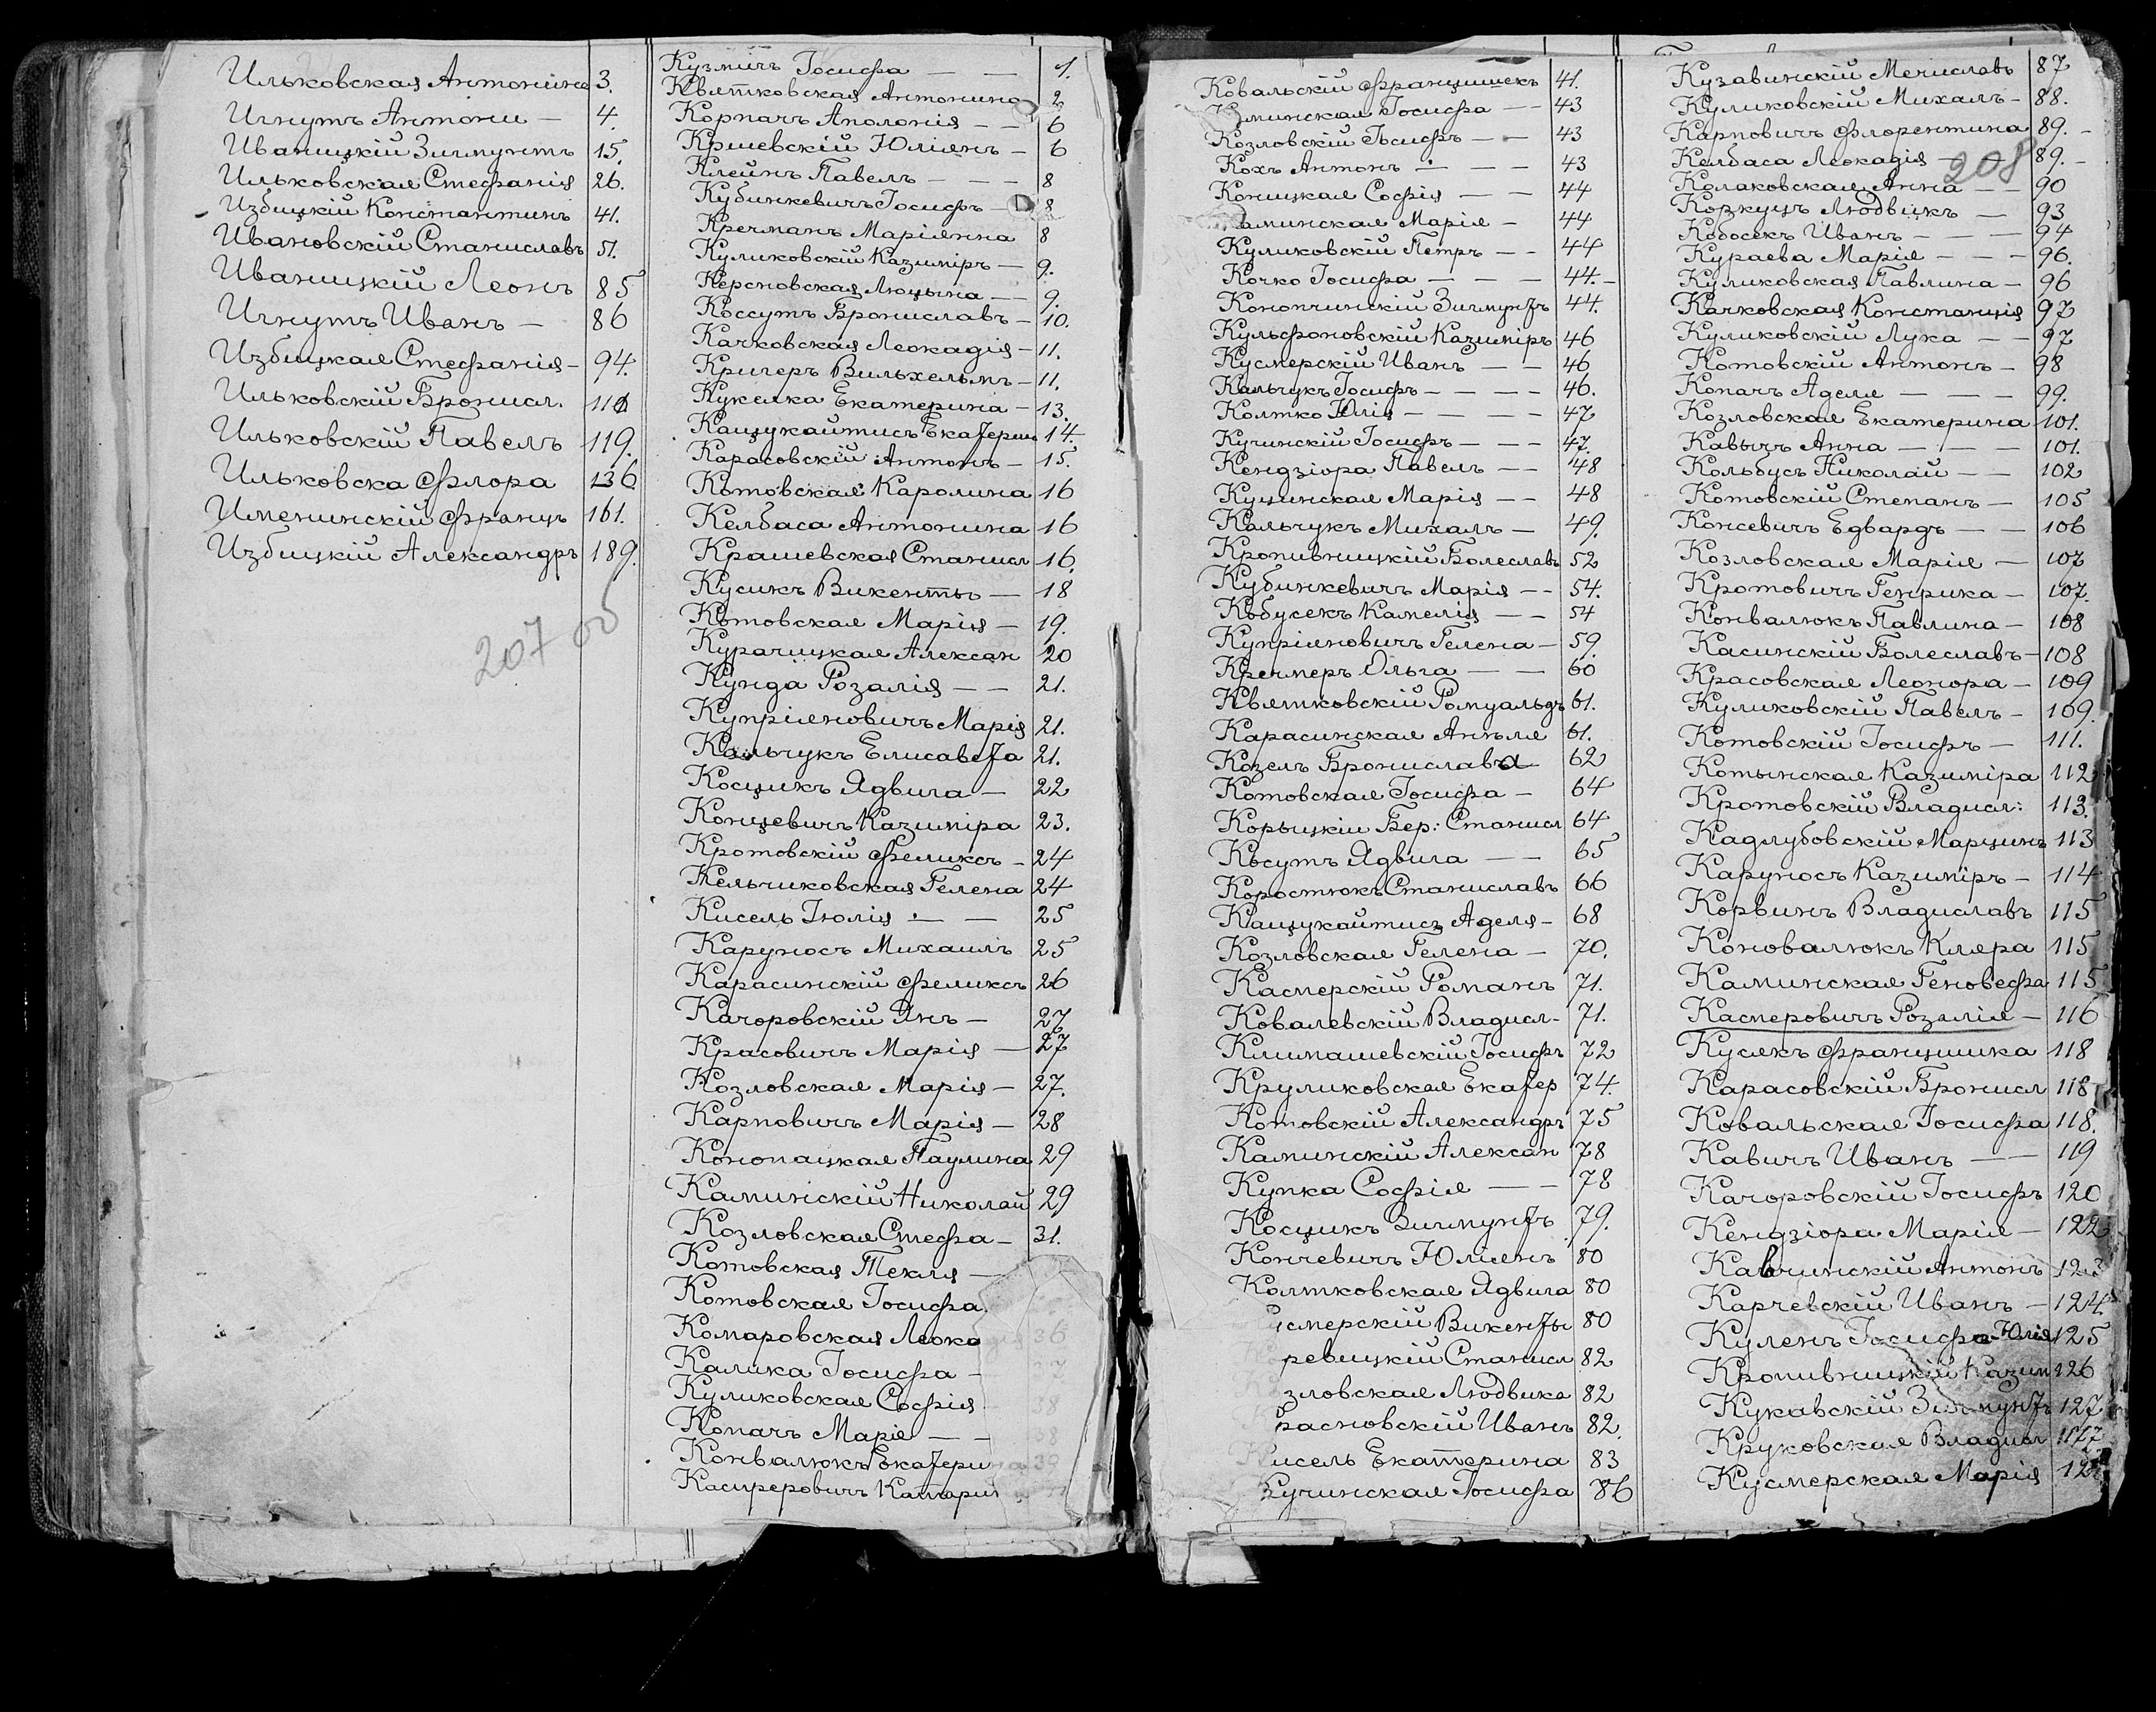 Ильковская Антонина 3.
Игнутъ Антони — 4.
Иваницкій Зигмунтъ 15.
Ильковская Стефанія 26.
Избицкій Константинъ 41.
Ивановскій Станиславъ 51.
Иваницкій Леонъ 85
Игнутъ Иванъ — 86
Избицкая Стефанія — 94.
Ильковскій Бронисл. 110
Ильковскій Павелъ 119.
Ильковска Флора 136
Именинскій Францъ 161.
Избицкій Александръ 189.
207 об
Кузмичъ Іосифа — — 1.
Квятковская Антонина 2
Корпачъ Аполонія — — 6
Кршевскій Юліянъ — 6
Клейнъ Павелъ — — — 8
Кубинкевичъ Іосифъ — 8
Кречманъ Маріянна 8
Куликовскій Казиміръ — 9.
Керсновская Люцына — 9.
Коссутъ Брониславъ — 10.
Качковская Леокадія — 11.
Кригеръ Вильхельмъ — 11.
Кукелка Екатерина — 13.
Кацукайтисъ Екатерин 14.
Карасовскій Антонъ — 15.
Котовская Каролина 16
Келбаса Антонина 16
Крашевская Станисл 16.
Кусикъ Викенты — 18
Котовская Марія — 19.
Курачицкая Алексан 20
Кунда Розалія — — 21.
Купріяновичъ Марія 21.
Кальчукъ Елисавета 21.
Косцикъ Ядвига — 22
Концевичъ Казиміра 23.
Кротовскій Феликсъ — 24
Кельчиковская Гелена 24
Кисель Іюлія — — 25
Каруносъ Михаилъ 25
Карасинскій Феликсъ 26
Качоровскій Янъ — 27
Красовичъ Марія — 27
Козловская Марія — 27.
Карповичъ Марія — 28
Конопацкая Паулина 29
Каминскій Николай 29
Козловская Стефа — 31.
Котовская Текля —
Котовская Іосифа
Комаровская Леока 36
Калика Іосифа — 37
Куликовская Софія 38
Копачъ Марія — — 38
Конвалюкъ Екатерина 39
Каспровичъ Катари
Ковальскій Францишекъ 41.
минская Іосифа — — 43
Козловскій Іосифъ — — 43
Кохъ Антонъ — — — 43
Коницкая Софія — — 44
аминская Марія — 44
Куликовскій Петръ — — 44
Кочко Іосифа — — — 44. —
Конопчинскій Зигмунтъ 44.
Кульфоновскій Казиміръ 46
Кусмерскій Иванъ — — 46
Кальчукъ Іосифъ — — — — 46.
Колтко Юлія — — — — 47
Кучинскій Іосифъ — — — 47.
Кендзіора Павелъ — — 48
Куцинская Марія — — 48
Кальчукъ Михалъ — 49.
Кропивницкій Болеславъ 52
Кубинкевичъ Марія — — 54.
Кобусекъ Камелія — — 54
Купріяновичъ Гелена — 59.
Кречмеръ Ольга — — 60
Квятковскій Ромуальдъ 61.
Карасинская Анеля 61.
Козелъ Бронислава 62
Котовская Іосифа — 64
Корыцкіи Бер: Станисл 64
Косутъ Ядвига — — 65
Коростюкъ Станиславъ 66
Кацукайтисъ Аделя — 68
Козловская Гелена — 70.
Касперскій Романъ 71.
Ковалевскій Владисл — 71.
Климашевскій Іосифъ 72
Круликовская Екатер 74.
Котовскій Александръ 75
Каминскій Алексан 78
Купка Софія — — 78
Косцикъ Зигмунтъ 79.
Кончевичъ Юліянъ 80
Колтковская Ядвига 80
смерскій Викенты 80
ревицкій Станисл 82
зловская Людвика 82
расновскій Иванъ 82.
исель Екатерина 83
Кучинская Іосифа 86
Кузавинскій Мечиславъ 87
Куликовскій Михалъ — 88.
Карповичъ Флорентина 89. —
Келбаса Леокадія — 89. —
208
Колаковская Анна — — 90
Корзкуцъ Людвикъ — 93
Кобосекъ Иванъ — — — 94
Кураева Марія — — — 96.
Куликовская Павлина — 96
Качковская Констанція 97
Куликовскій Лука — — 97
Котовскій Антонъ — 98
Копачъ Аделя — — — 99.
Козловская Екатерина 101.
Кавычъ Анна — — — 101.
Кольбусъ Николай — — 102
Котовскій Степанъ — 105
Консевичъ Едвардъ — — 106
Козловская Марія — 107
Кротовичъ Генрика — 107.
Конвалюкъ Павлина — 108
Касинскій Болеславъ — 108
Красовская Леонора — 109
Куликовскій Павелъ — 109.
Котовскій Іосифъ — 111.
Котынская Казиміра 112
Кротовскій Владисл: 113.
Кадлубовскій Марцинъ 113
Каруносъ Казиміръ — 114
Корвинъ Владиславъ 115
Коновалюкъ Кляра 115
Каминская Геновефа 115
Касперовичъ Розалія — 116
Кусякъ Францишка 118
Карасовскій Бронисл 118
Ковальская Іосифа 118.
Кавичъ Иванъ — — 119
Качоровскій Іосифъ 120
Кендзіора Марія — 122
Кавчинскій Антонъ 123
Карчевскій Иванъ — 124.
Куленъ Іосифа Юлія 125
Кропивницкій Казим 126
Кукавскій Зигмунтъ 127
Круковская Владисл 127
Кусмерская Марія